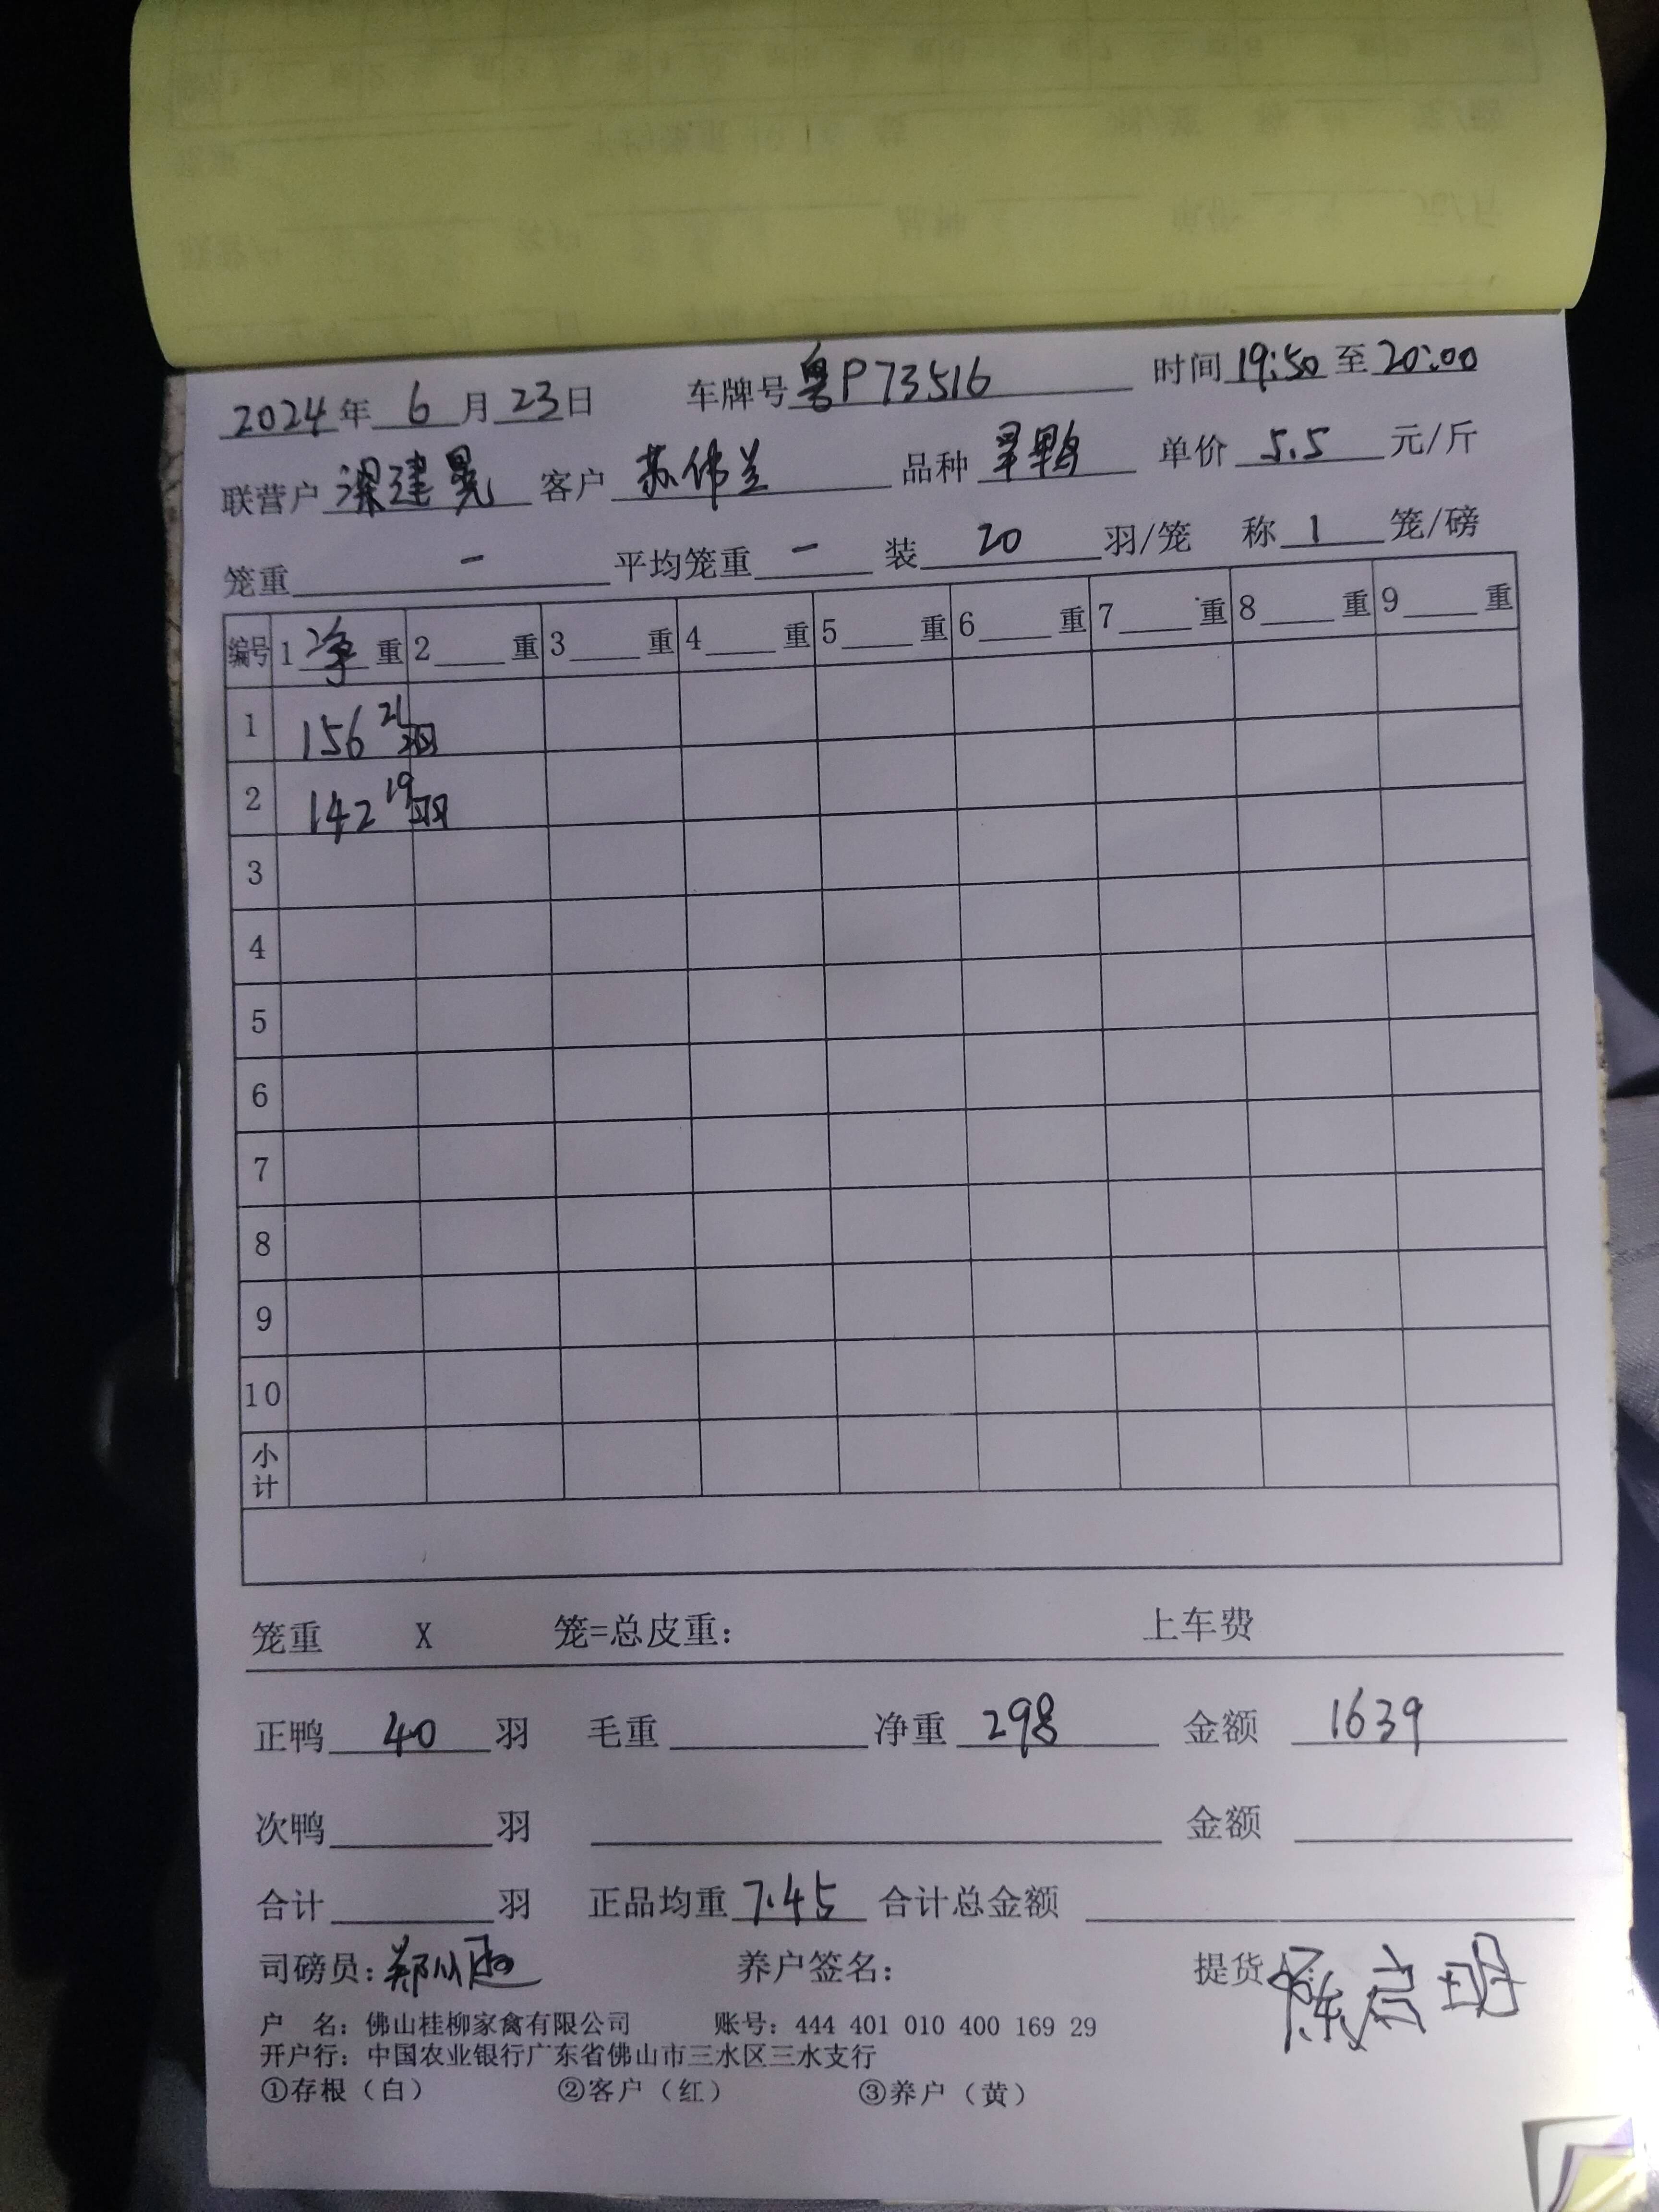 2024年6月23日 车牌号粤P73516 时间19:50至20:00
联营户梁建晃 客户苏伟兰 品种旱鸭 单价5.5元/斤
笼重- 平均笼重- 装20羽/笼 称1笼/磅
编号 1净重 2重 3重 4重 5重 6重 7重 8重 9重
1 156 21羽
2 142 19羽
3
4
5
6
7
8
9
10
小计
笼重 X 笼=总皮重: 上车费
正鸭40羽 毛重 净重298 金额1639
次鸭 羽 金额
合计 羽 正品均重7.45 合计总金额
司磅员:郑 养户签名: 提货 陈启明
户 名: 佛山桂柳家禽有限公司 账号: 444 401 010 400 169 29
开户行: 中国农业银行广东省佛山市三水区三水支行
①存根(白) ②客户(红) ③养户(黄)